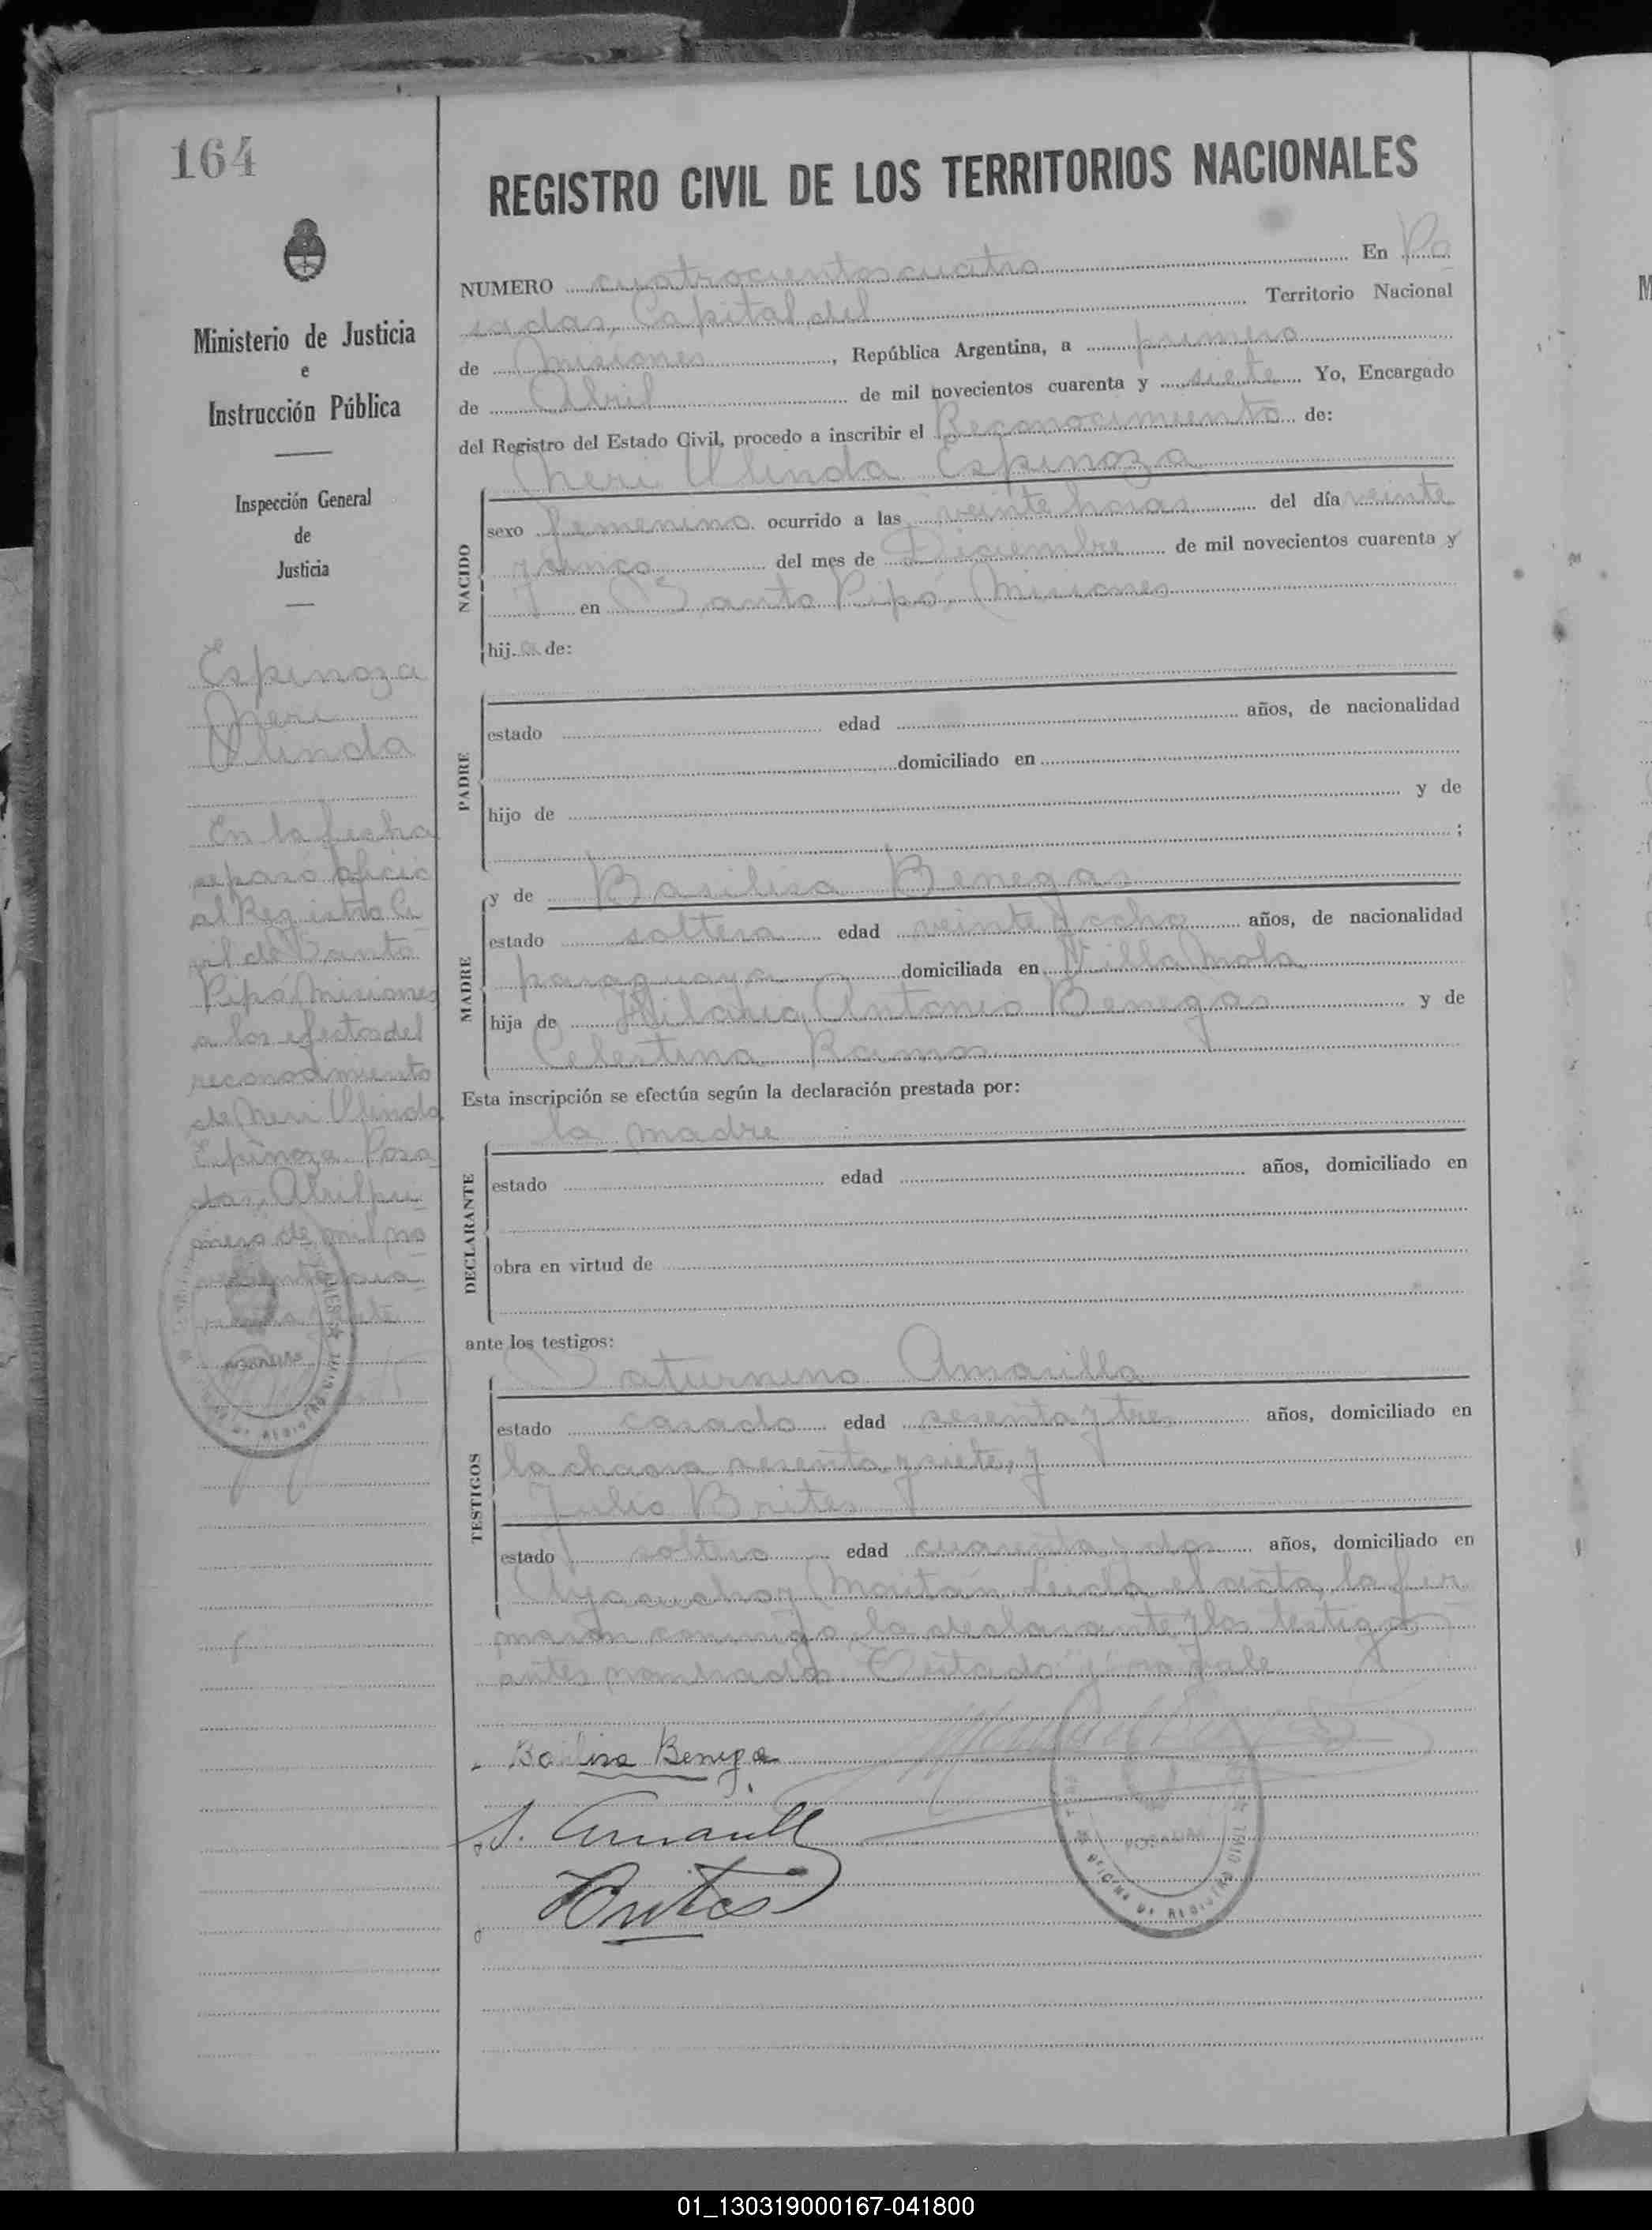 164
REGISTRO CIVIL DE LOS TERRITORIOS NACIONALES
Ministerio de Justicia
e
Instrucción Pública
Inspección General
de
Justicia
Espinoza
Neri
Ulinda
En la fecha
se pasó oficio
al Registro Ci
vil de Santo
Pipó, Misiones
a los efectos del
reconocimiento
de Neri Ulinda
Espinoza. Posa
das, Abril pri
mero de mil no
vecientos cua
renta y siete
NUMERO cuatrocientos cuatro En Po
sadas, Capital del Territorio Nacional
de Misiones, República Argentina, a primero
de Abril de mil novecientos cuarenta y siete Yo, Encargado
del Registro del Estado Civil, procedo a inscribir el Reconocimiento de:
Neri Ulinda Espinoza
NACIDO
sexo femenino ocurrido a las veinte horas del día veinte
y cinco del mes de Diciembre de mil novecientos cuarenta y
en Santo Pipó, Misiones
hija de:
PADRE
estado edad años, de nacionalidad
domiciliado en
hijo de y de
;
MADRE
y de Basilisa Benegas
estado soltera edad veinte y ocho años, de nacionalidad
paraguaya domiciliada en Villa Mola
hija de Hilario Antonio Benegas y de
Celestina Ramos
Esta inscripción se efectúa según la declaración prestada por:
la madre
DECLARANTE
estado edad años, domiciliado en
obra en virtud de
ante los testigos:
Saturnino Amarilla
TESTIGOS
estado casado edad sesenta y tres años, domiciliado en
la chacra sesenta y siete, y
Julio Brites
estado soltero edad cuarenta y dos años, domiciliado en
Ayacucho y Maitán. Leida el acta, la fir
maron conmigo, la declarante y los testigos
antes nombrados. Testado "y" no vale.
Basilisa Benega
S. Amarill
JBrites
POSADAS
01_130319000167-041800